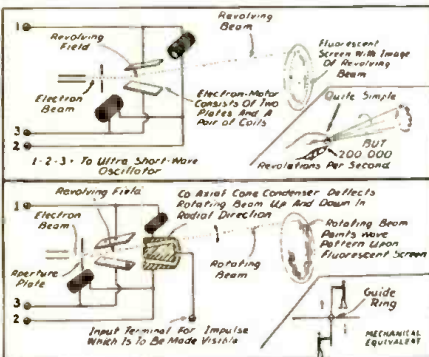 1
Revolving
Field
Revolving
Beam
Fluorescent
Screen With Image
Of Revolving
Beam
Electron
Beam
Electron-Motor
Consists Of Two
Plates And A
Pair of Coils
3
2
1-2-3, To Ultra Short-Wave
Oscillator
Quite Simple
BUT
200 000
Revolations Per Second
Revolving Field
1
Electron
Beam
Co Axial Cone Condenser Deflects
Rotating Beam Up And Down In
Radial Direction
Aperture
Plate
Rotating
Beam
Rotating Beam
Paints Wave
Pattern Upon
Fluorescent Screen
3
2
Input Terminal For Impulse
Which Is To Be Made Visible
Guide
Ring
MECHANICAL
EQUIVALENT